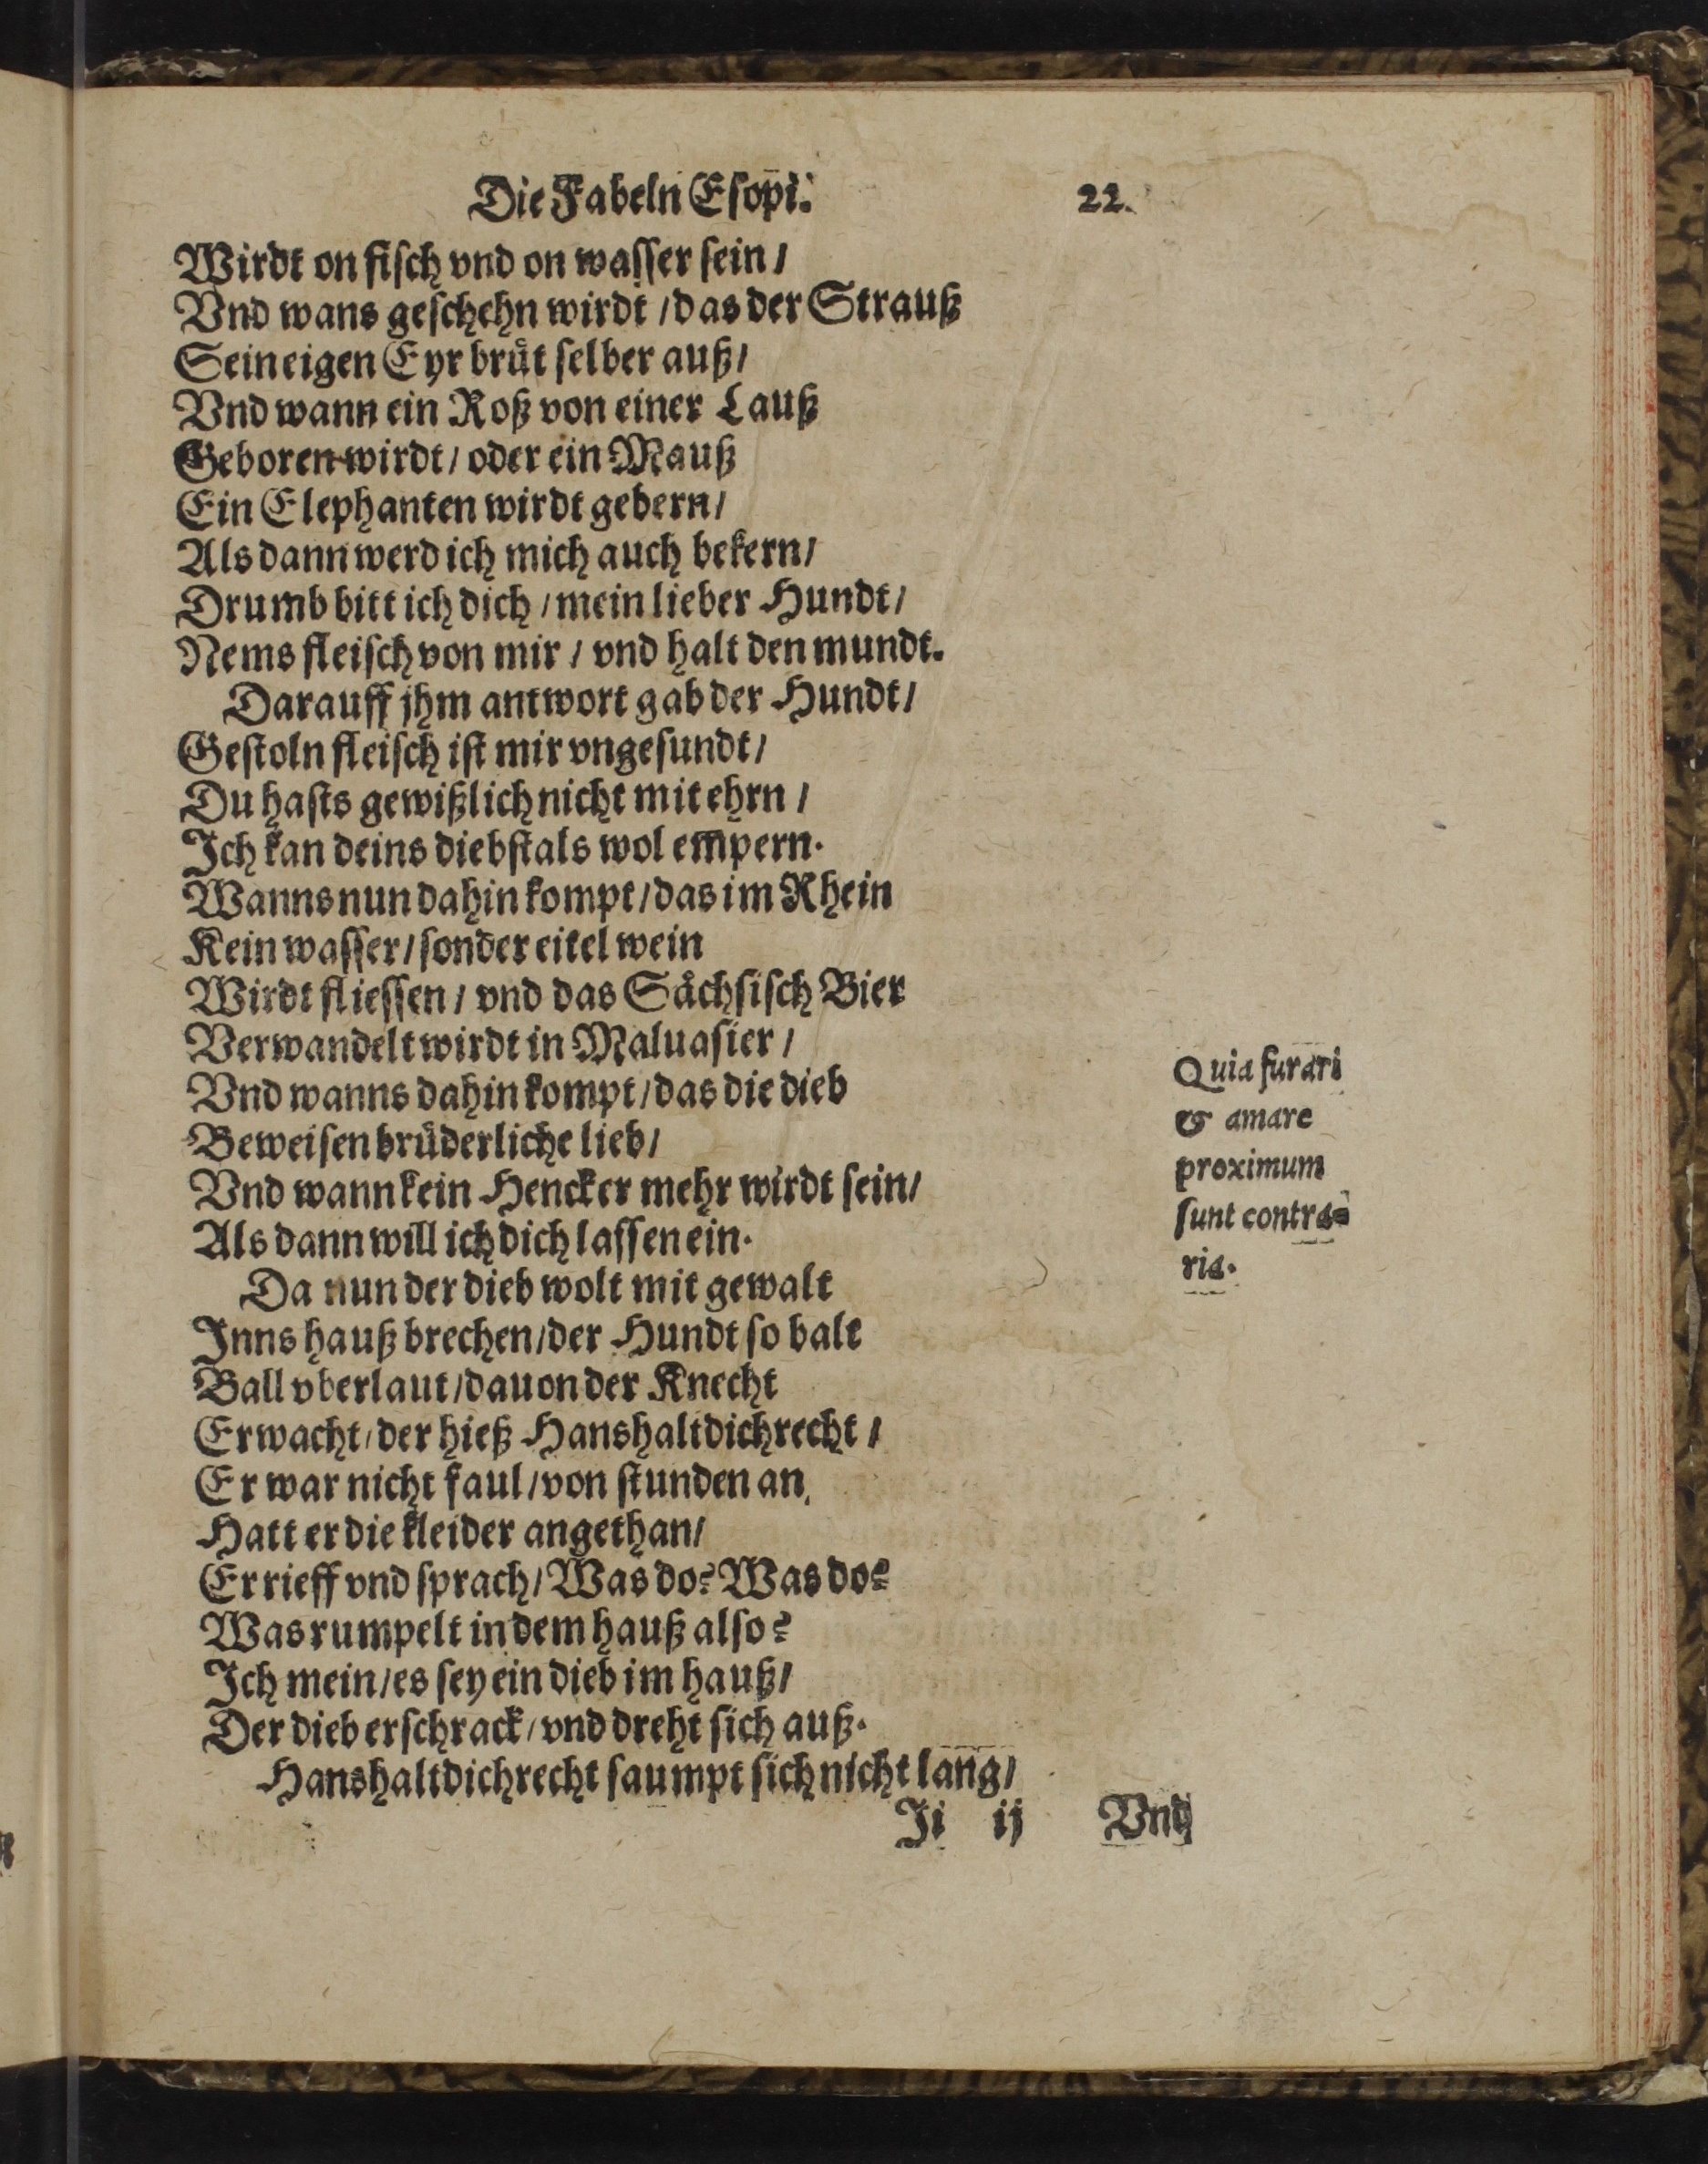 Die Fabeln Esopi. 22.
Wirdt on fisch vnd on wasser sein /
Vnd wans geschehn wirdt / das der Strauß
Sein eigen Eyr bruͤt selber auß /
Vnd wann ein Roß von einer Lauß
Geboren wirdt / oder ein Mauß
Ein Elephanten wirdt gebern /
Als dann werd ich mich auch bekern /
Drumb bitt ich dich / mein lieber Hundt /
Nems fleisch von mir / vnd halt den mundt.
Darauff jhm antwort gab der Hundt /
Gestoln fleisch ist mir vngesundt /
Du hasts gewißlich nicht mit ehrn /
Ich kan deins diebstals wol empern.
Wanns nun dahin kompt / das im Rhein
Kein wasser / sonder eitel wein
Wirdt fliessen / vnd das Saͤchsisch Bier
Verwandelt wirdt in Maluasier /
Vnd wanns dahin kompt / das die dieb
Beweisen bruͤderliche lieb /
Vnd wann kein Hencker mehr wirdt sein /
Als dann will ich dich lassen ein.
Quia furari
& amare
proximum
sunt contra=
ria.
Da nun der dieb wolt mit gewalt
Inns hauß brechen / der Hundt so balt
Ball vberlaut / dauon der Knecht
Erwacht / der hieß Hanshaltdichrecht /
Er war nicht faul / von stunden an
Hatt er die kleider angethan /
Er rieff vnd sprach / Was do? Was do?
Was rumpelt in dem hauß also?
Ich mein / es sey ein dieb im hauß /
Der dieb erschrack / vnd dreht sich auß.
Hanshaltdichrecht saumpt sich nicht lang /
Ii ij Vnd